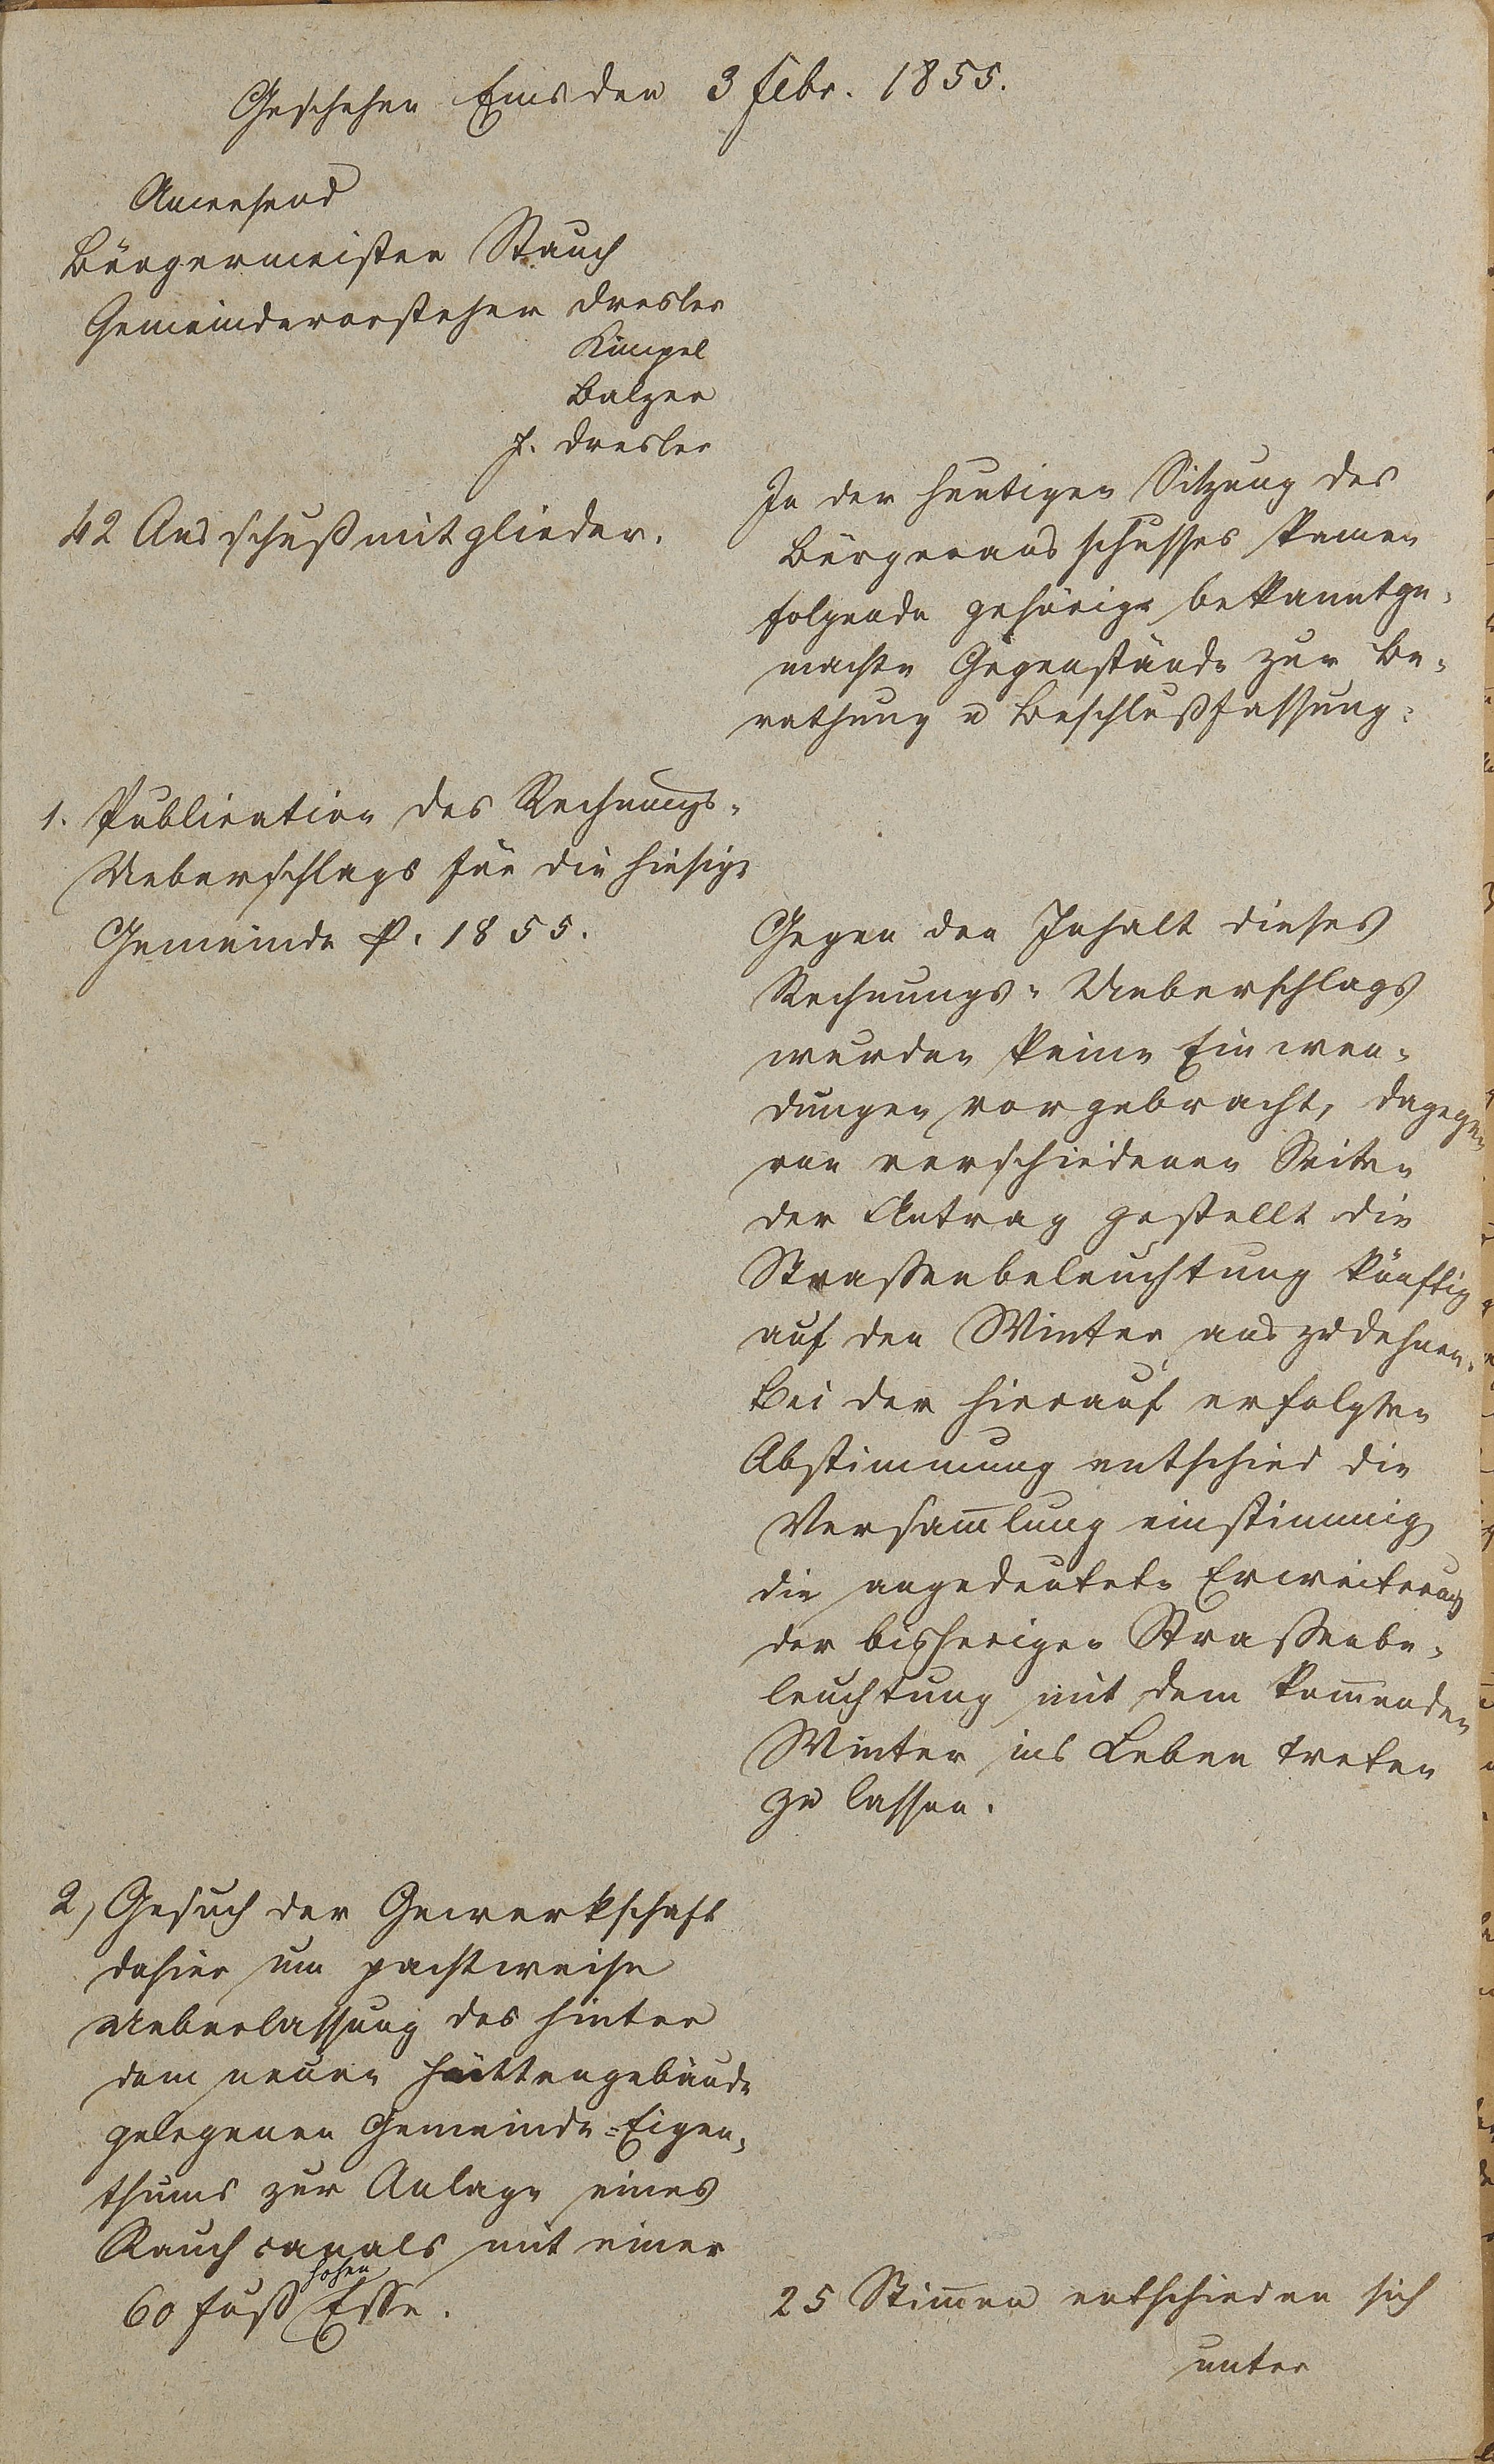 Geschehen Ems den 3 Febr. 1855.
Anwesend
Bürgermeister Stauch
Gemeindevorsteher Dresler
Kimpel
Balzer
J. Dresler
42 Ausschußmitglieder.
In der heutigen Sitzung des
Bürgerausschusses kamen
folgende gehörig bekanntge-
machte Gegenstände zur Be-
rathung u Beschlußfassung:
1. Publication des Rechnungs-
Ueberschlags für die hiesige
Gemeinde p. 1855.
Gegen den Inhalt dieses
Rechnungs-Ueberschlags
wurden keine Einwen-
dungen vorgebracht, dagegen
von verschiedenen Seiten
der Antrag gestellt die
Straßenbeleuchtung künftig
auf den Winter auszudehnen.
Bei der hierauf erfolgten
Abstimmung entschied die
Versam̄lung einstimmig
die angedeutete Erweiterung
der bisherigen Straßenbe-
leuchtung mit dem kom̄enden
Winter ins Leben treten
zu lassen.
2, Gesuch der Gewerkschaft
dahier um pachtweise
Ueberlassung des hinter
dem neuen Hüttengebäude
gelegenen Gemeinde-Eigen-
thums zur Anlage eines
Rauchcanals mit einer
60 Fuß hohen Esse.
25 Stim̄en entschieden sich
unter